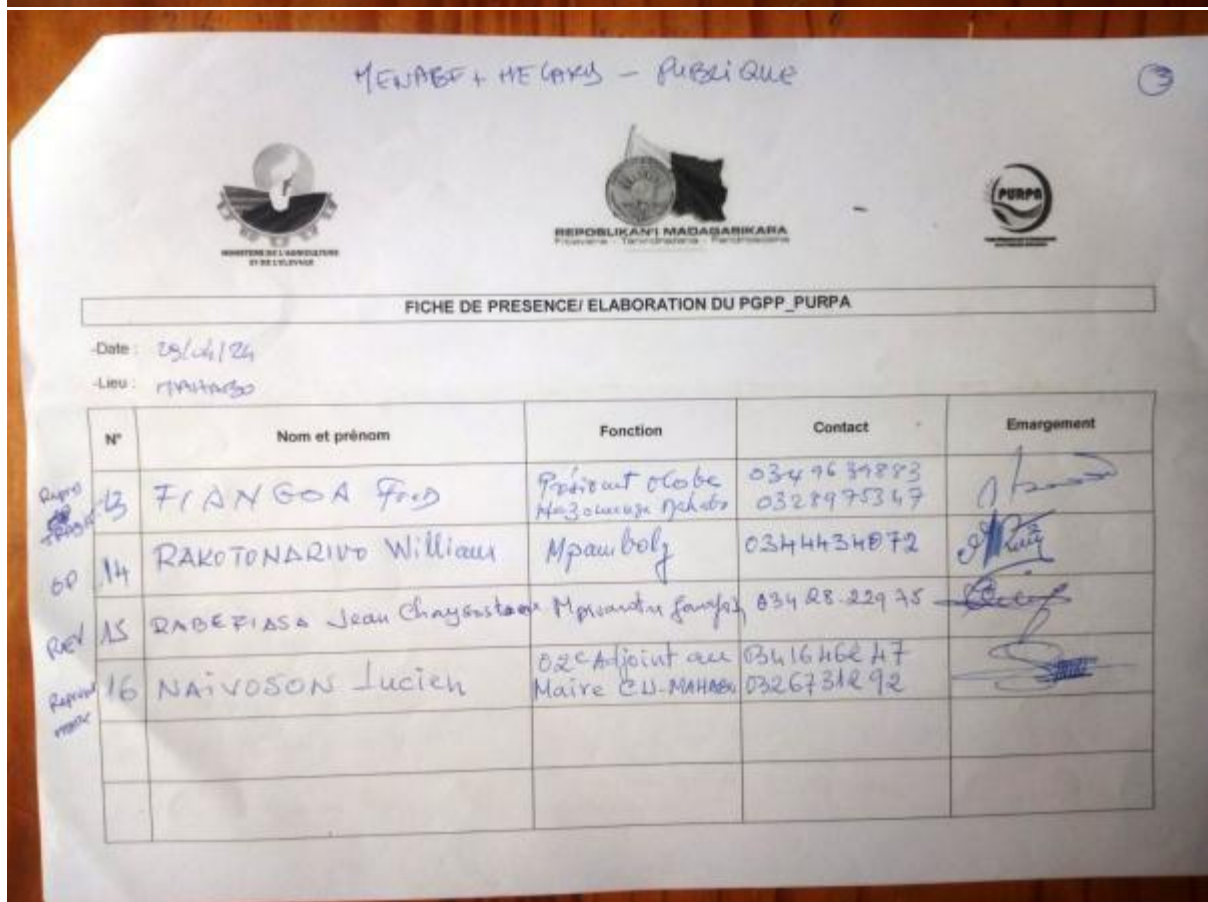 MENABE + MELAKY - PUBLIQUE
3
MINISTERE DE L'AGRICULTURE
ET DE L'ELEVAGE
REPOBLIKAN'I MADAGASIKARA
Fitiavana - Tanindrazana - Fandrosoana
PURPA
FICHE DE PRESENCE/ ELABORATION DU PGPP_PURPA
-Date : 29/04/24
-Lieu : MAHABO
N° Nom et prénom Fonction Contact Emargement
13 FIANGOA Fred 0349639883
0328975347
OP 14 RAKOTONARIVO William Mpamboly 0344434072
15 RABEFIASA Jean Chrysostome 034 28 229 75
16 NAIVOSON Lucien 02e Adjoint au 0341646247
Maire CU-MAHABO 0326731292